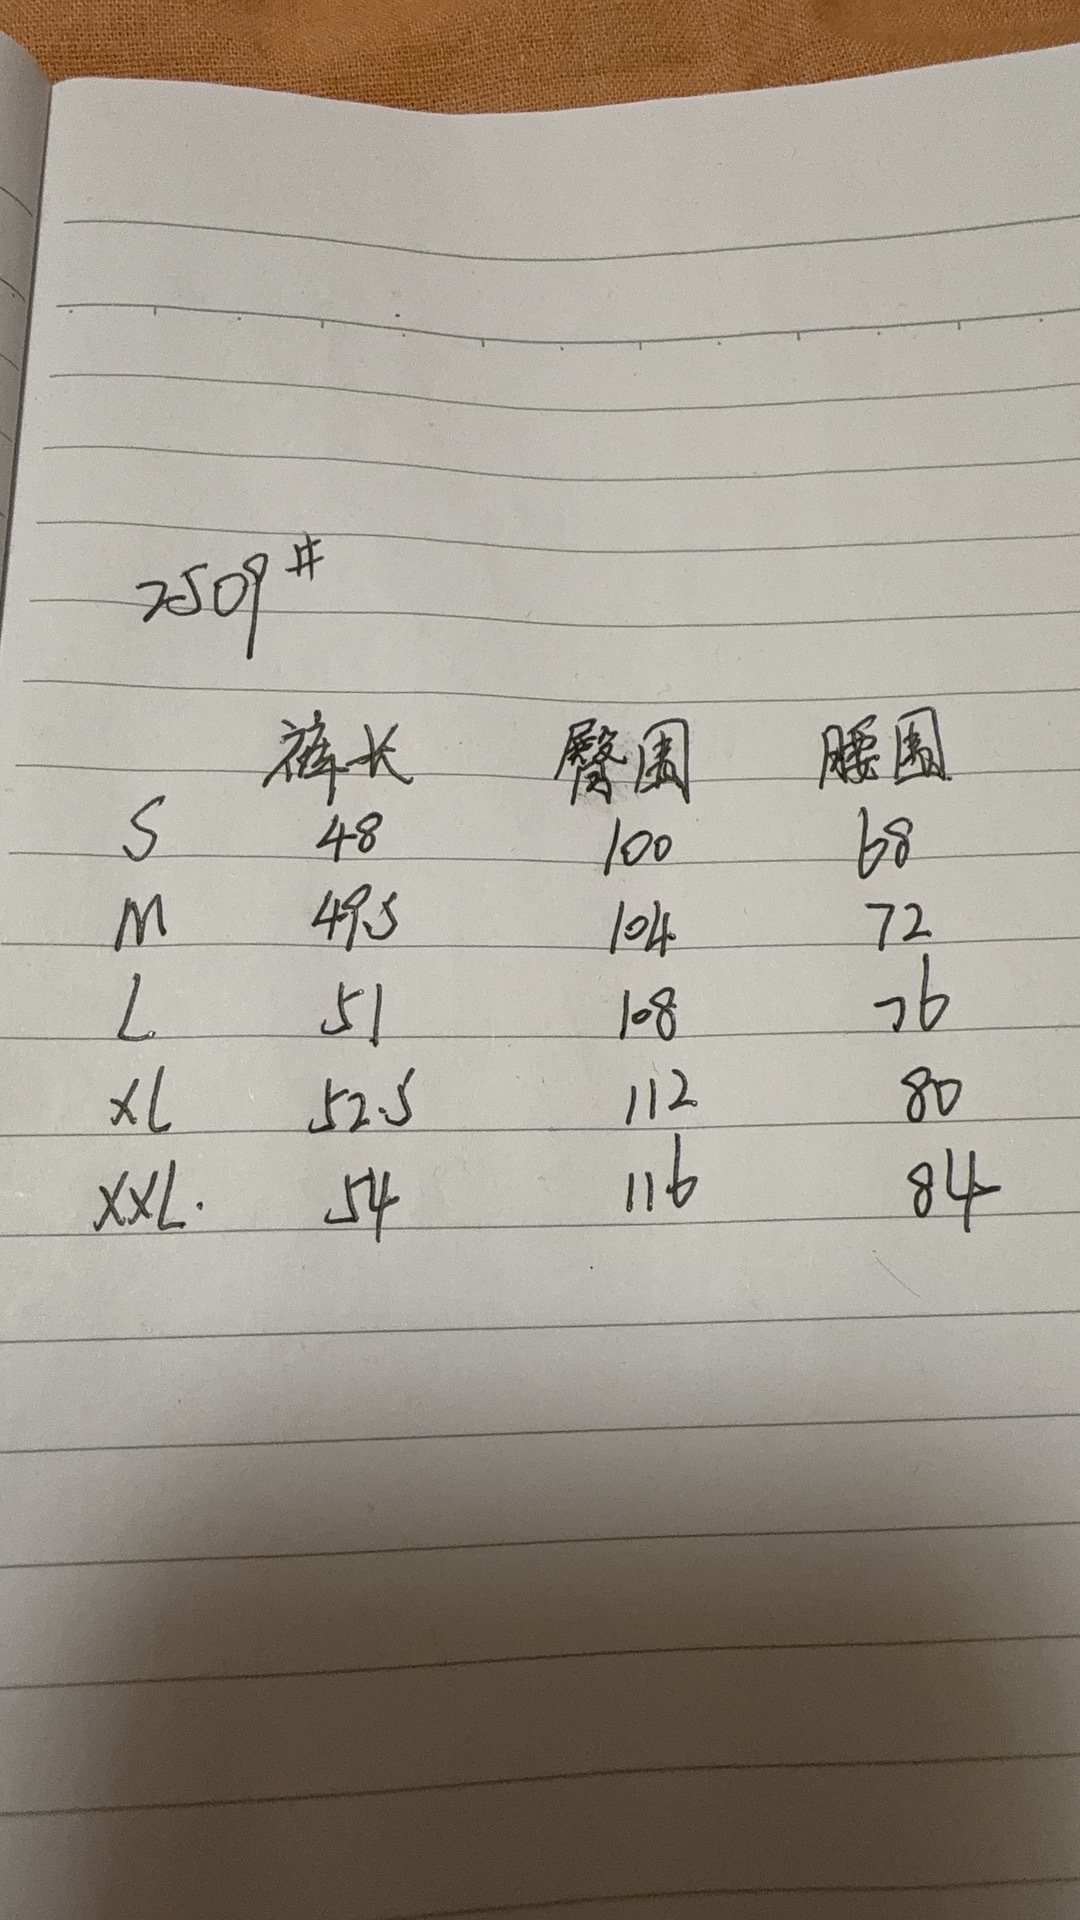 2509#
裤长 臀围 腰围
S 48 100 68
M 49.5 104 72
L 51 108 76
XL 52.5 112 80
XXL. 54 116 84